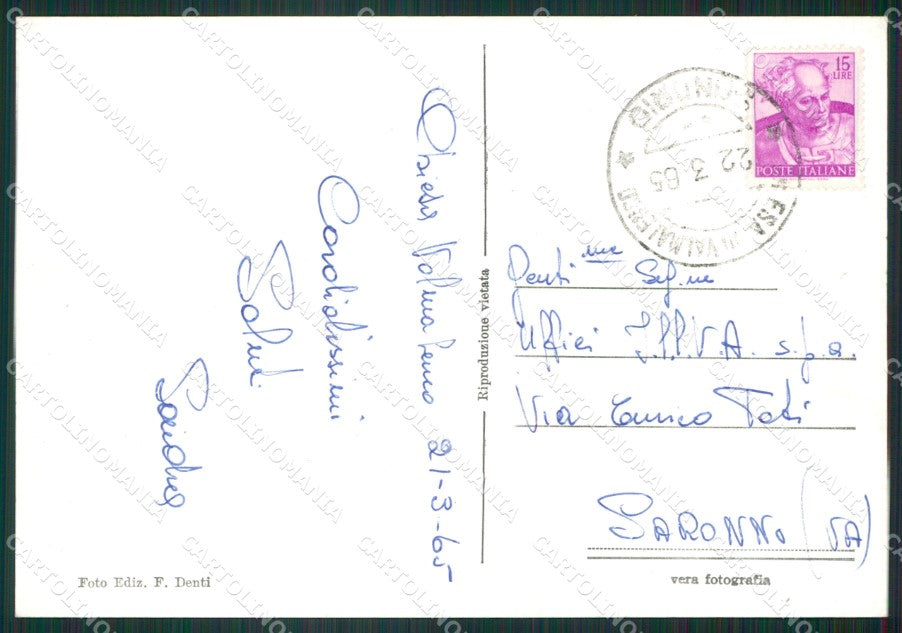 Chiesa Valmalenco 21-3-65
Cordialissimi
Saluti
Sandra
Foto Ediz. F. Denti
Riproduzione vietata
15
LIRE
POSTE ITALIANE
22 3 65
Genti.me Sig.ne
Uffici I.L.L.V.A. s.p.a.
Via Enrico Toti
SARONNO (VA)
vera fotografia
CARTOLINOMANIA